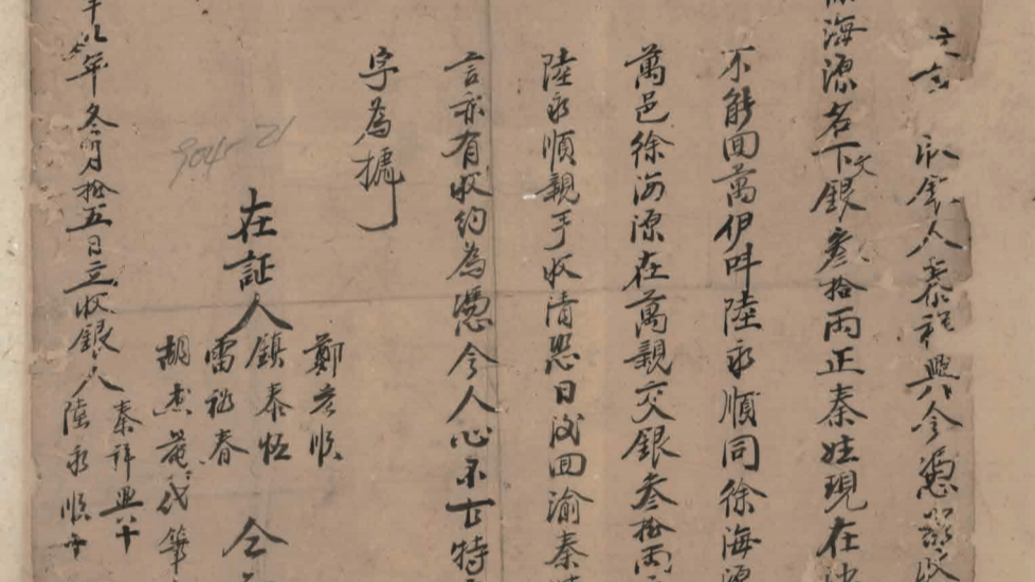 收銀人秦祥興今憑
海源名下文銀叁拾兩正秦姓現在
不能回萬伊叫陸永順同徐海源
萬邑徐海源在萬親交銀叁拾兩
陸永順親手收清恐日後回渝秦
言亦有收約為憑今人心不古特
字為據
鄭
鎮泰恒
在証人
雷 春
胡 代筆
仝
年冬月拾五日立收銀人
秦祥興
陸永順
904-21